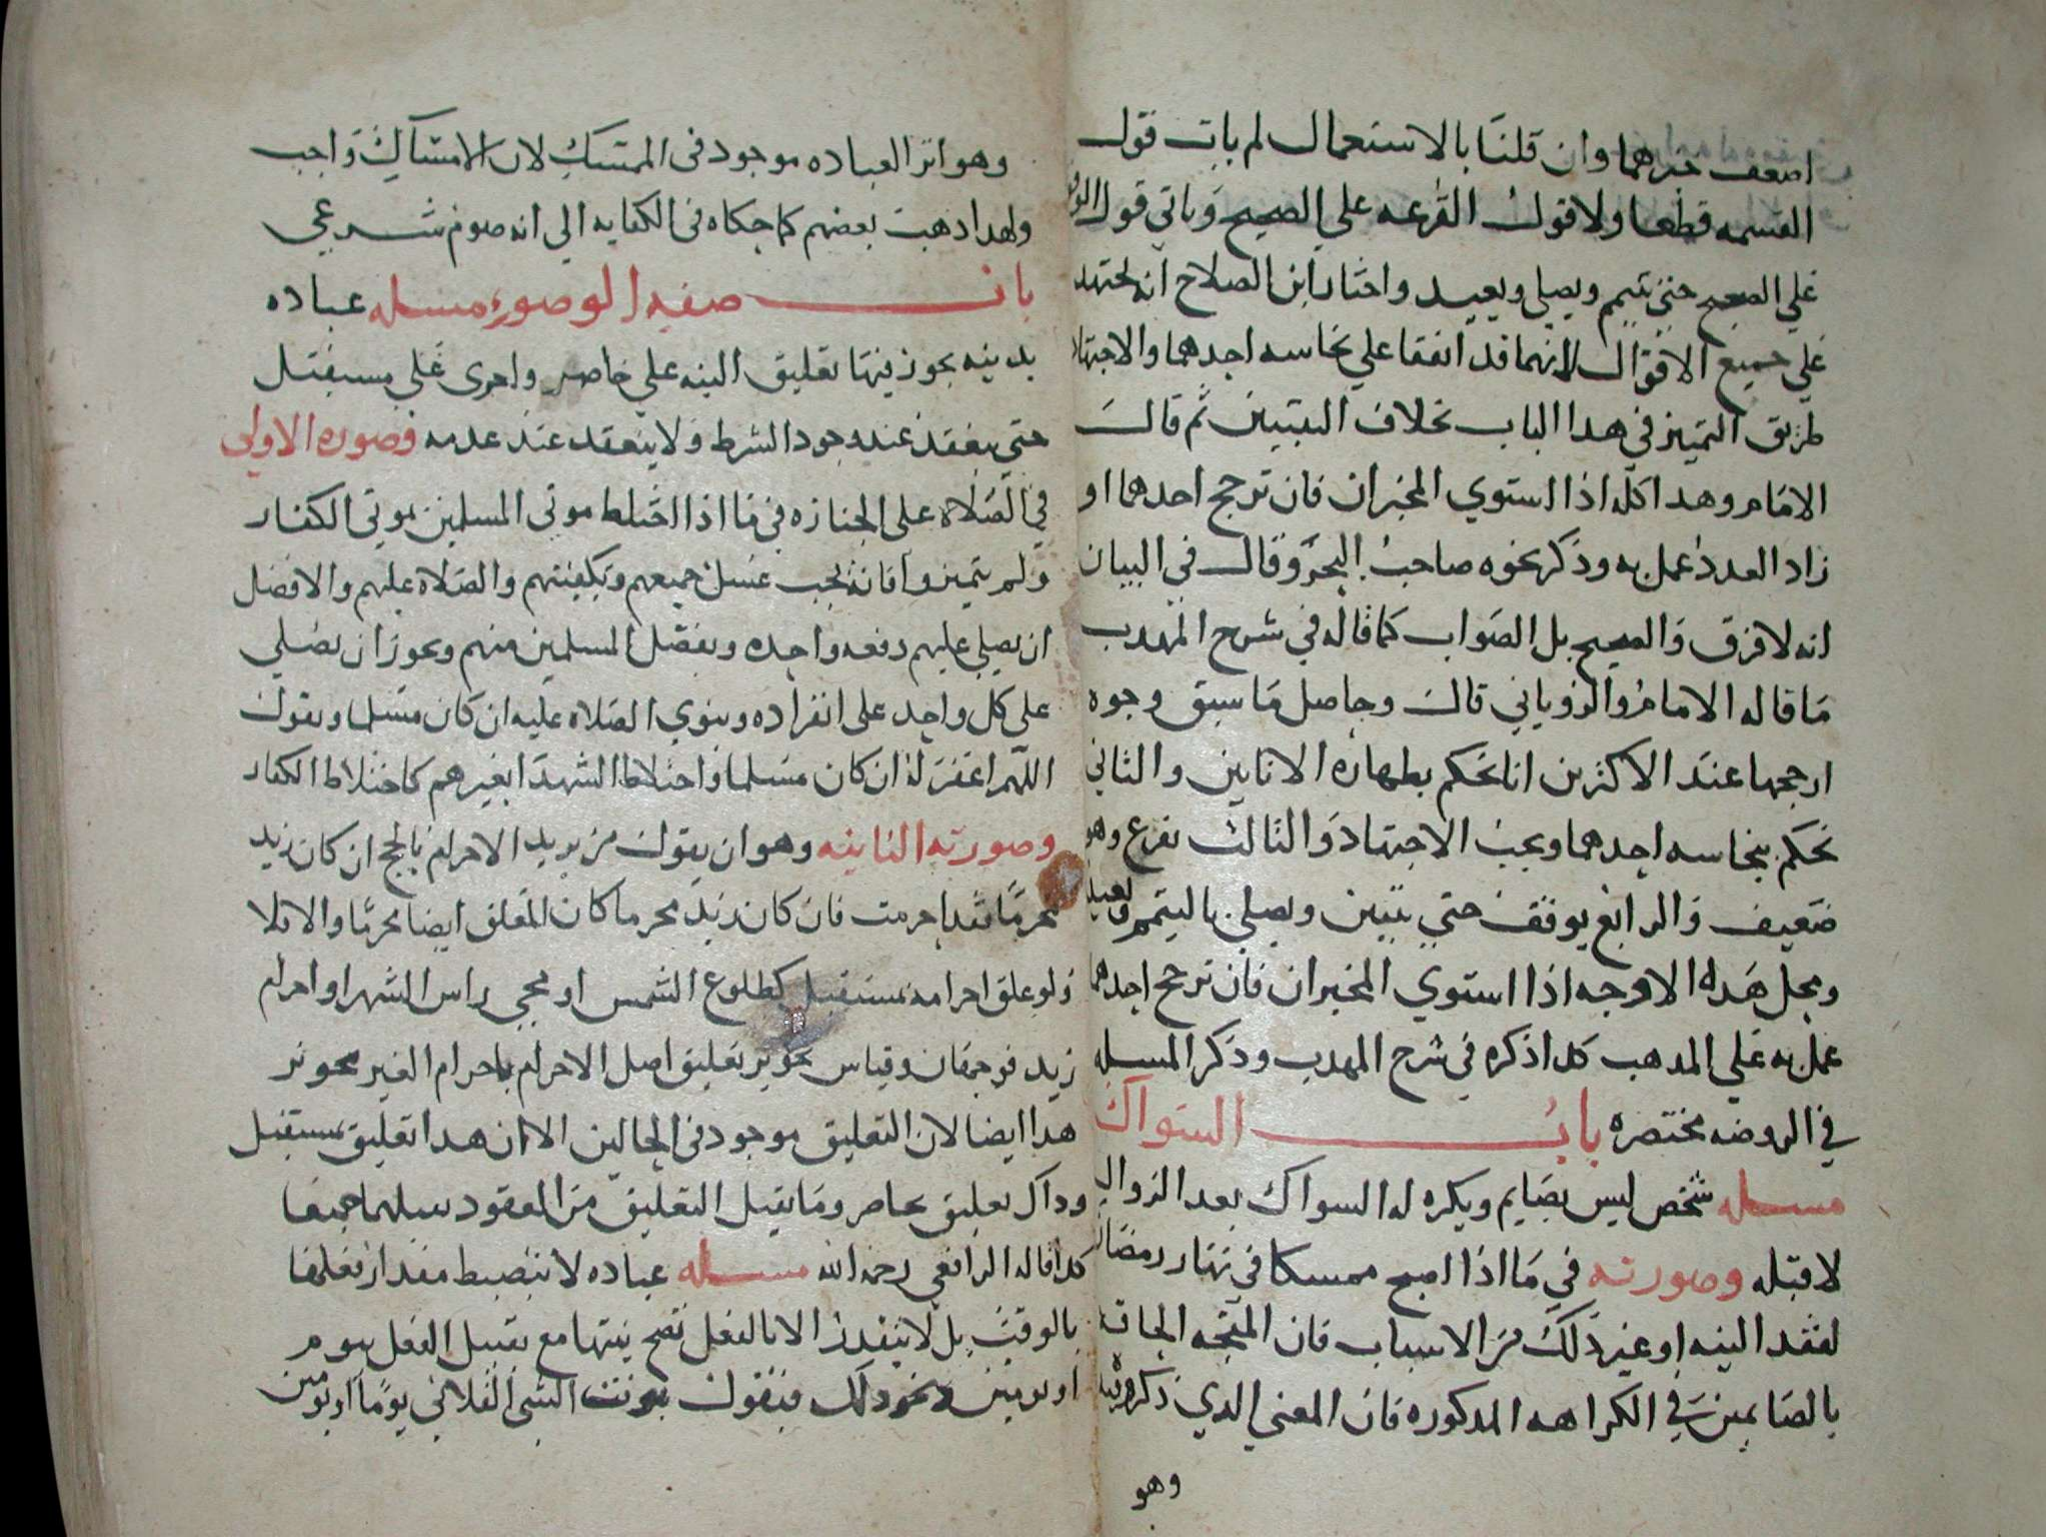 اضعف خبرهما وان قلنا بالاستعمال لم يات قول
القسمه قطعا ولا قول القرعه علي الصحيح وياتي قول الوقف
علي الصحيح حتي يتيمم ويصلي ويعيد واختار ابن الصلاح انه يجتهد
علي جميع الاقوال لانهما قد اتفقا علي نجاسه احدهما والاجتهاد
طريق التمييز في هذا الباب بخلاف البينتين ثم قال
الامام وهذا كله اذا استوي المخبران فان ترجح احدهما او
زاد العدد عمل به وذكر نحوه صاحب البحر وقال في البيان
انه لا فرق والصحيح بل الصواب كما قاله في شرح المهذب
ما قاله الامام والروياني قال وحاصل ما سبق وجوه
ارجحها عند الاكثرين انا نحكم بطهاره الانايين والثاني
نحكم بنجاسه احدهما ويجب الاجتهاد والثالث يقرع وهو
ضعيف والرابع يوقف حتي يتبين ويصلي بالتيمم ويعيد
ومحل هذه الاوجه اذا استوي المخبران فان ترجح احدهما
عمل به علي المذهب كذا ذكره في شرح المهذب وذكر المسله
في الروضه مختصره باب السواك
مسله شخص ليس بصايم ويكره له السواك بعد الزوال
لا قبله وصورته في ما اذا اصبح ممسكا في نهار رمضان
لفقد النيه او غير ذلك من الاسباب فان المتجه الحاقه
بالصايمين في الكراهه المذكوره فان المعني الذي ذكروه فيه
وهو
وهو اثر العباده موجود في الممسك لان الامساك واجب
ولهذا ذهب بعضهم كما حكاه في الكفايه الي انه صوم شرعي
باب صفه الوضوء مسله عباده
بدنيه يجوز فيها تعليق النيه علي حاضر واخرى علي مستقبل
حتي ينعقد عند وجود الشرط ولا ينعقد عند عدمه وصوره الاولي
في الصلاه على الجنازه في ما اذا اختلط موتى المسلمين بموتي الكفار
ولم يتميزوا فانه يجب غسل جميعهم وتكفينهم والصلاه عليهم والافضل
ان يصلي عليهم دفعه واحده ويقصد المسلمين منهم ويجوز ان يصلي
على كل واحد على انفراده وينوي الصلاه عليه ان كان مسلما ويقول
اللهم اغفر له ان كان مسلما واختلاط الشهدا بغيرهم كاختلاط الكفار
وصورته الثانيه وهو ان يقول من يريد الاحرام بالحج ان كان زيد
محرما فقد احرمت فان كان زيد محرما كان المعلق ايضا محرما والا فلا
ولو علق احرامه بمستقبل كطلوع الشمس او مجي راس الشهر او احرام
زيد فوجهان وقياس تجويز تعليق اصل الاحرام باحرام الغير تجويز
هذا ايضا لان التعليق موجود في الحالين الا ان هذا تعليق بمستقبل
وذاك تعليق بحاضر وما يقبل التعليق من العقود يقبلهما جميعا
كذا قاله الرافعي رحمه الله مسله عباده لا ينضبط مقدار فعلها
بالوقت بل لا يتقدر الا بالفعل تصح نيتها مع تقييد الفعل بيوم
او يومين ونحو ذلك فيقول نويت الشي الفلاني يوما او يومين